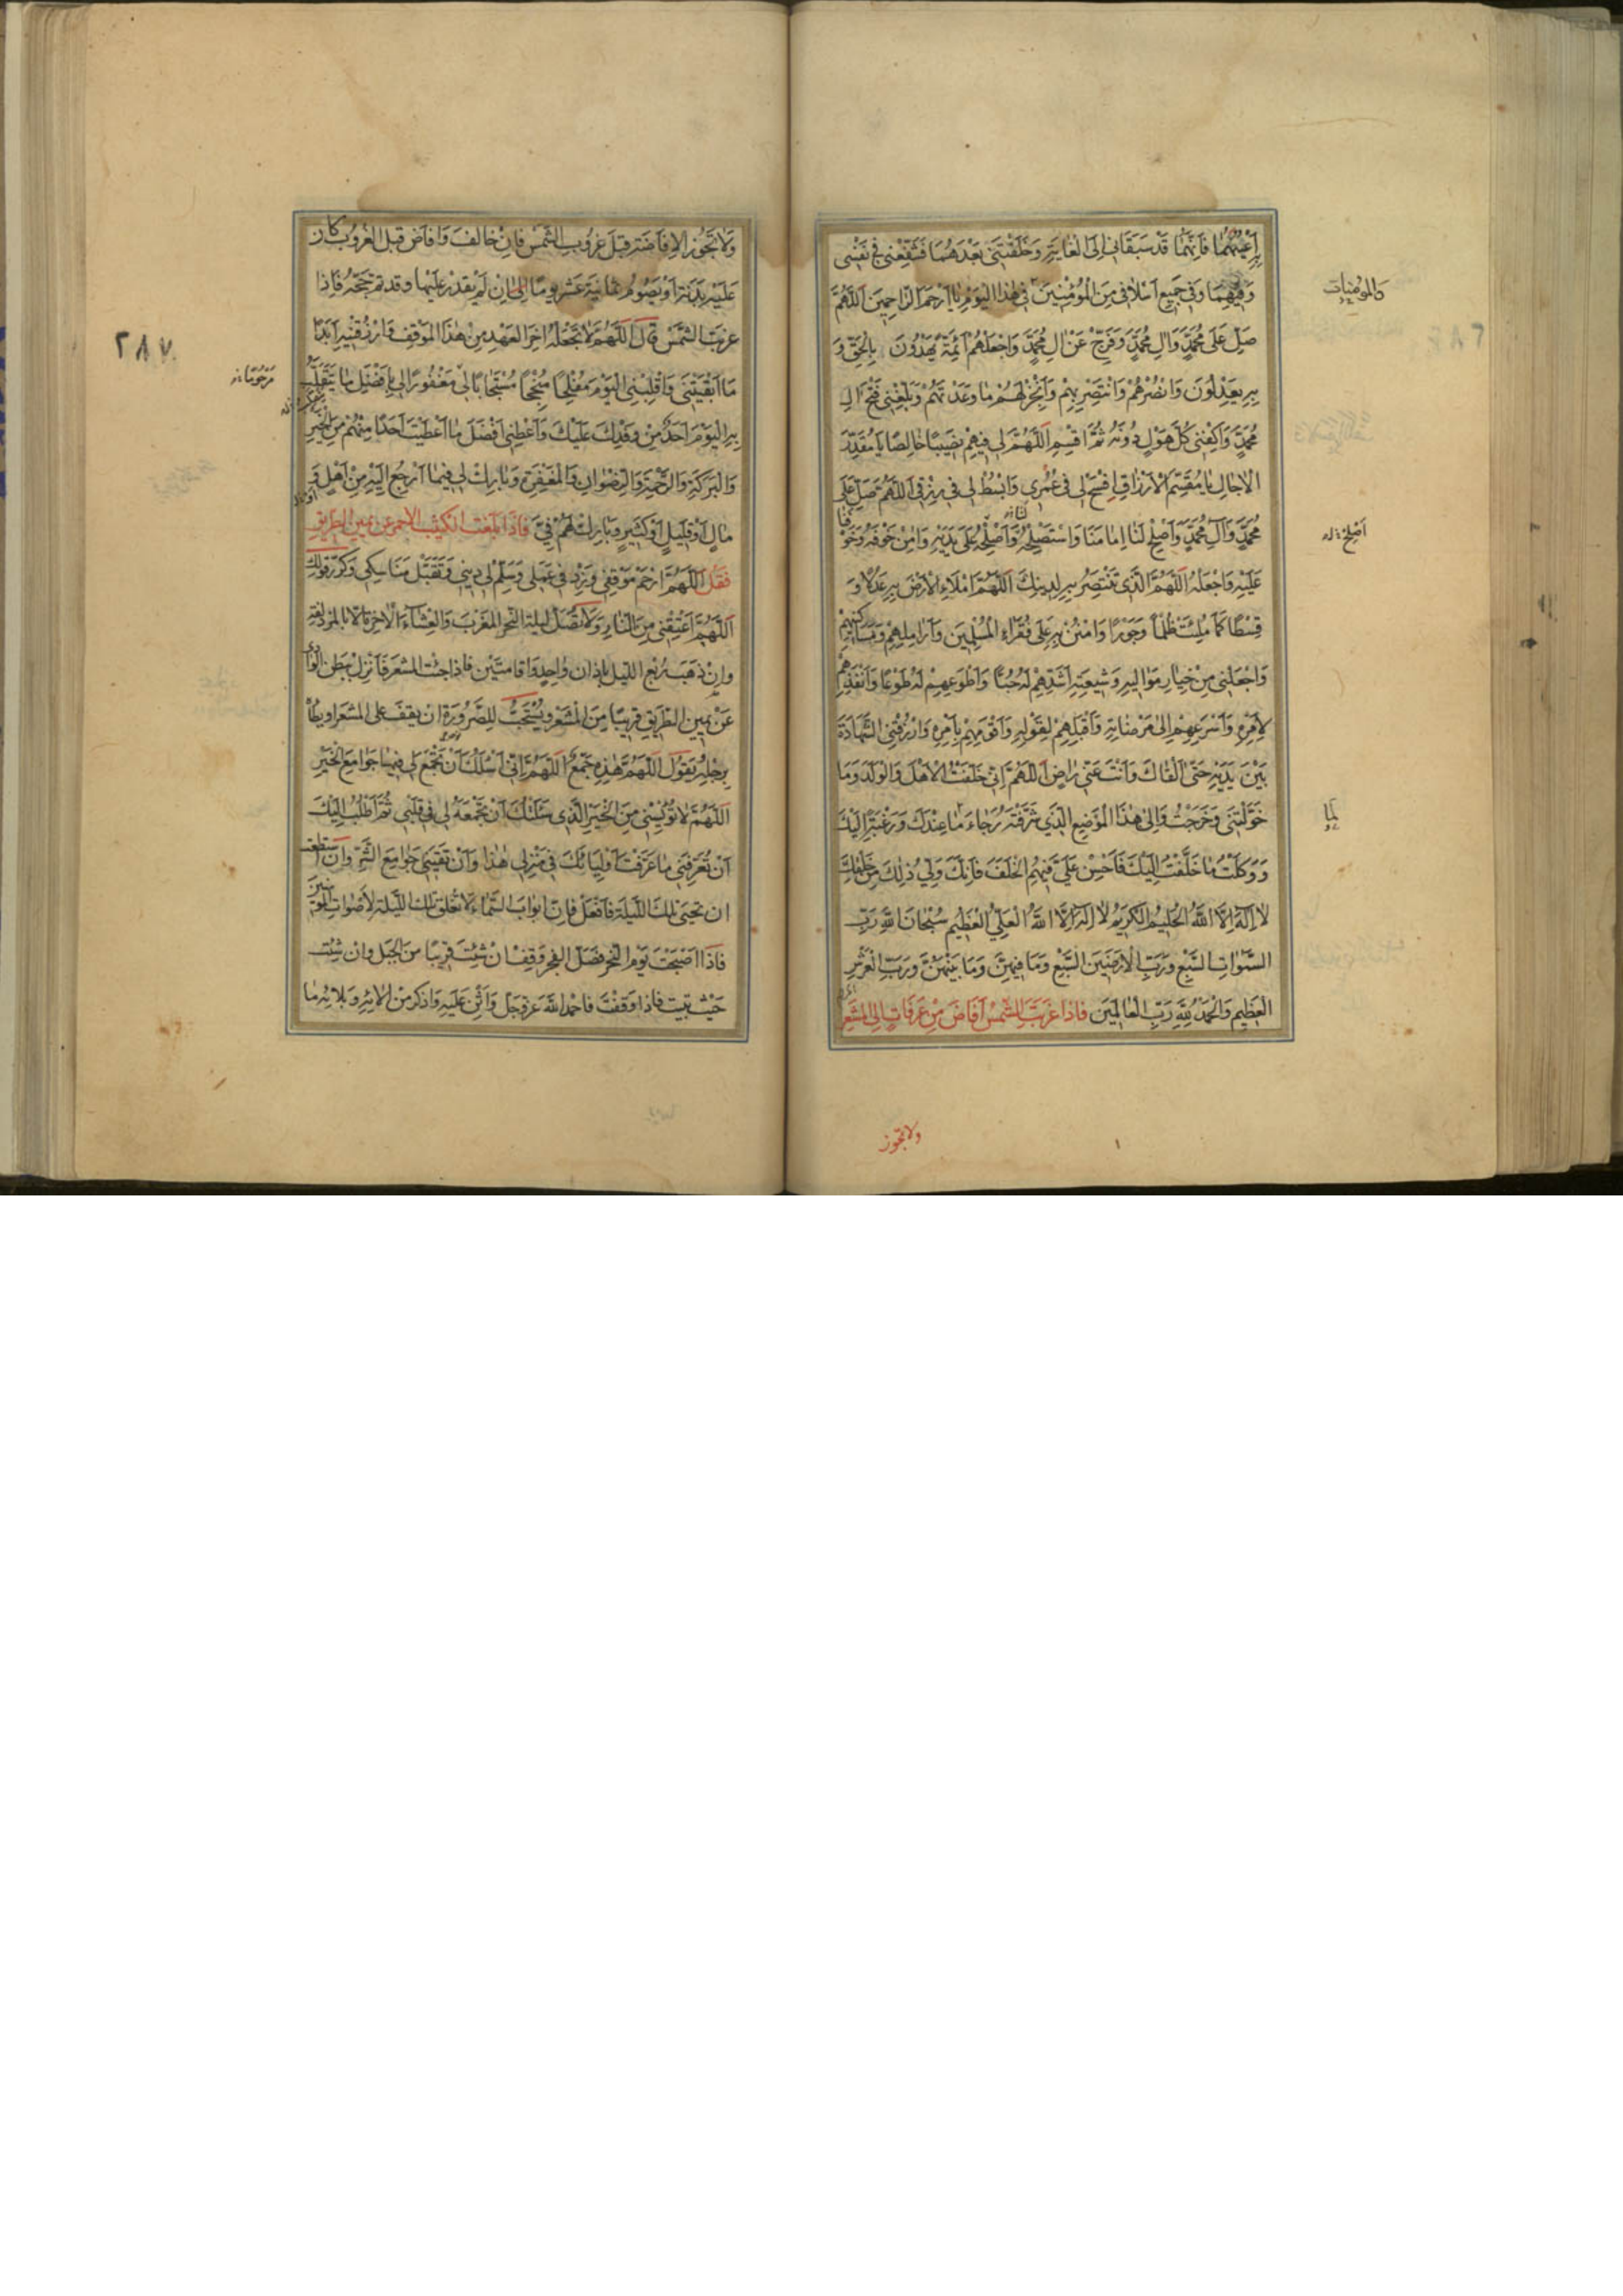 بِرَغْبَتِهِمَا فَاِنَّهُمَا قَدْ سَبَقَانِى اِلَى الْغَايَةِ وَخَلَّفْتَنِى بَعْدَهُمَا فَشَفِّعْنِى فِى نَفْسِى
وَفِيهِمَا وَفِى جَمِيعِ اَسْلَافِى مِنَ الْمُؤْمِنِينَ فِى هٰذَا الْيَوْمِ يَا اَرْحَمَ الرَّاحِمِينَ اَللّٰهُمَّ
والمؤمنات
صَلِّ عَلَى مُحَمَّدٍ وَالِ مُحَمَّدٍ وَفَرِّجْ عَنْ الِ مُحَمَّدٍ وَاجْعَلْهُمْ اَئِمَّةً يَهْدُونَ بِالْحَقِّ وَ
بِهِ يَعْدِلُونَ وَانْصُرْهُمْ وَانْتَصِرْ بِهِمْ وَاَنْجِزْ لَهُمْ مَا وَعَدْتَهُمْ وَبَلِّغْنِى فَتْحَ الِ
مُحَمَّدٍ وَاكْفِنِى كُلَّ هَوْلٍ دُونَهُ ثُمَّ اقْسِمِ اَللّٰهُمَّ لِى فِيهِمْ نَصِيبًا خَالِصًا يَا مُقَدِّرَ
الْاجَالِ يَا مُقَسِّمَ الْاَرْزَاقِ اِفْسَحْ لِى فِى عُمْرِى وَابْسُطْ لِى فِى رِزْقِى اَللّٰهُمَّ صَلِّ عَلَى
مُحَمَّدٍ وَآلِ مُحَمَّدٍ وَاَصْلِحْ لَنَا اِمَامَنَا وَاسْتَصْلِحْهُ وَاَصْلِحْ عَلَى يَدَيْهِ وَامِنْ خَوْفَهُ وَخَوْفَنَا
اَصْلِحْ
عَلَيْهِ وَاجْعَلْهُ اَللّٰهُمَّ الَّذِى تَنْتَصِرُ بِهِ لِدِينِكَ اَللّٰهُمَّ امْلَاءِ الْاَرْضَ بِهِ عَدْلًا وَ
قِسْطًا كَمَا مُلِئَتْ ظُلْمًا وَجَوْرًا وَامْنُنْ بِهِ عَلَى فُقَرَاءِ الْمُسْلِمِينَ وَاَرَامِلِهِمْ وَمَسَاكِينِهِمْ
وَاجْعَلْنِى مِنْ خِيَارِ مَوَالِيهِ وَشِيعَتِهِ اَشَدِّهِمْ لَهُ حُبًّا وَاَطْوَعِهِمْ لَهُ طَوْعًا وَاَنْفَذِهِمْ
لِاَمْرِهِ وَاَسْرَعِهِمْ اِلَى مَرْضَاتِهِ وَاَقْبَلِهِمْ لِقَوْلِهِ وَاَقْوَمِهِمْ بِاَمْرِهِ وَارْزُقْنِى الشَّهَادَةَ
بَيْنَ يَدَيْهِ حَتَّى اَلْقَاكَ وَاَنْتَ عَنِّى رَاضٍ اَللّٰهُمَّ اِنِّى خَلَّفْتُ الْاَهْلَ وَالْوَلَدَ وَمَا
خَوَّلْتَنِى وَخَرَجْتُ وَاِلَى هٰذَا الْمَوْضِعِ الَّذِى شَرَّفْتَهُ رَجَاءَ مَا عِنْدَكَ وَرَغْبَةً اِلَيْكَ
لما
وَوَكَلْتُ مَا خَلَّفْتُ اِلَيْكَ فَاَحْسِنْ عَلَىَّ فِيهِمُ الْخَلَفَ فَاِنَّكَ وَلِىُّ ذٰلِكَ مِنْ خَلْقِكَ
لَا اِلٰهَ اِلَّا اللّٰهُ الْحَلِيمُ الْكَرِيمُ لَا اِلٰهَ اِلَّا اللّٰهُ الْعَلِىُّ الْعَظِيمُ سُبْحَانَ اللّٰهِ رَبِّ
السَّمٰوَاتِ السَّبْعِ وَرَبِّ الْاَرَضِينَ السَّبْعِ وَمَا فِيهِنَّ وَمَا بَيْنَهُنَّ وَرَبِّ الْعَرْشِ
الْعَظِيمِ وَالْحَمْدُ لِلّٰهِ رَبِّ الْعَالَمِينَ فَاِذَا غَرَبَتِ الشَّمْسُ اَفَاضَ مِنْ عَرَفَاتٍ اِلَى الْمَشْعَرِ
ولا تجوز
وَلَا تَجُوزُ الْاِفَاضَةُ قَبْلَ غُرُوبِ الشَّمْسِ فَاِنْ خَالَفَ وَاَفَاضَ قَبْلَ الْغُرُوبِ كَانَ
عَلَيْهِ بَدَنَةٌ اَوْ يَصُومُ ثَمَانِيَةَ عَشَرَ يَوْمًا اِنْ لَمْ يَقْدِرْ عَلَيْهَا وَقَدْ تَمَّ حَجُّهُ فَاِذَا
غَرَبَتِ الشَّمْسُ قَالَ اَللّٰهُمَّ لَا تَجْعَلْهُ اخِرَ الْعَهْدِ مِنْ هٰذَا الْمَوْقِفِ وَارْزُقْنِيهِ اَبَدًا
٢٨٧
مَا اَبْقَيْتَنِى وَاقْلِبْنِى الْيَوْمَ مُفْلِحًا مُنْجِحًا مُسْتَجَابًا لِى مَغْفُورًا لِى بِاَفْضَلِ مَا يَنْقَلِبُ
مَرْحُومًا
بِهِ الْيَوْمَ اَحَدٌ مِنْ وَفْدِكَ عَلَيْكَ وَاَعْطِنِى اَفْضَلَ مَا اَعْطَيْتَ اَحَدًا مِنْهُمْ مِنَ الْخَيْرِ
وَالْبَرَكَةِ وَالرَّحْمَةِ وَالرِّضْوَانِ وَالْمَغْفِرَةِ وَبَارِكْ لِى فِيمَا اَرْجِعُ اِلَيْهِ مِنْ اَهْلٍ وَ
مَالٍ اَوْ قَلِيلٍ اَوْ كَثِيرٍ وَبَارِكْ لَهُمْ فِىَّ فَاِذَا بَلَغْتَ الْكَثِيبَ الْاَحْمَرَ عَنْ يَمِينِ الطَّرِيقِ
فَقُلْ اَللّٰهُمَّ ارْحَمْ مَوْقِفِى وَزِدْ فِى عَمَلِى وَسَلِّمْ لِى دِينِى وَتَقَبَّلْ مَنَاسِكِى وَكَرِّرْ قَوْلَكَ
اَللّٰهُمَّ اَعْتِقْنِى مِنَ النَّارِ وَلَا تُصَلِّ لَيْلَةَ النَّحْرِ الْمَغْرِبَ وَالْعِشَاءَ الْاخِرَةَ اِلَّا بِالْمُزْدَلِفَةِ
وَاِنْ ذَهَبَ رُبْعُ اللَّيْلِ بِاَذَانٍ وَاحِدٍ وَاِقَامَتَيْنِ فَاِذَا جِئْتَ الْمَشْعَرَ فَانْزِلْ بِبَطْنِ الْوَادِى
عَنْ يَمِينِ الطَّرِيقِ قَرِيبًا مِنَ الْمَشْعَرِ وَيُسْتَحَبُّ لِلصَّرُورَةِ اَنْ يَقِفَ عَلَى الْمَشْعَرِ اَوْ يَطَأَ
بِرِجْلِهِ يَقُولَ اَللّٰهُمَّ هٰذِهِ جَمْعٌ اَللّٰهُمَّ اِنِّى اَسْئَلُكَ اَنْ تَجْمَعَ لِى فِيهَا جَوَامِعَ الْخَيْرِ
اَللّٰهُمَّ لَا تُؤْيِسْنِى مِنَ الْخَيْرِ الَّذِى سَئَلْتُكَ اَنْ تَجْمَعَهُ لِى فِى قَلْبِى ثُمَّ اَطْلُبُ اِلَيْكَ
اَنْ تُعَرِّفَنِى مَا عَرَّفْتَ اَوْلِيَائَكَ فِى مَنْزِلِى هٰذَا وَاَنْ تَقِيَنِى جَوَامِعَ الشَّرِّ وَاِنِ اسْتَطَعْتَ
اَنْ تُحْيِىَ تِلْكَ اللَّيْلَةَ فَافْعَلْ فَاِنَّ اَبْوَابَ السَّمَاءِ لَا تُغْلَقُ تِلْكَ اللَّيْلَةَ لِاَصْوَاتِ الْمُؤْمِنِينَ
فَاِذَا اَصْبَحْتَ يَوْمَ النَّحْرِ فَصَلِّ الْفَجْرَ وَقِفْ اِنْ شِئْتَ قَرِيبًا مِنَ الْجَبَلِ وَاِنْ شِئْتَ
حَيْثُ تَبِيتُ فَاِذَا وَقَفْتَ فَاحْمَدِ اللّٰهَ عَزَّ وَجَلَّ وَاَثْنِ عَلَيْهِ وَاذْكُرْ مِنْ الَائِهِ وَبَلَائِهِ مَا